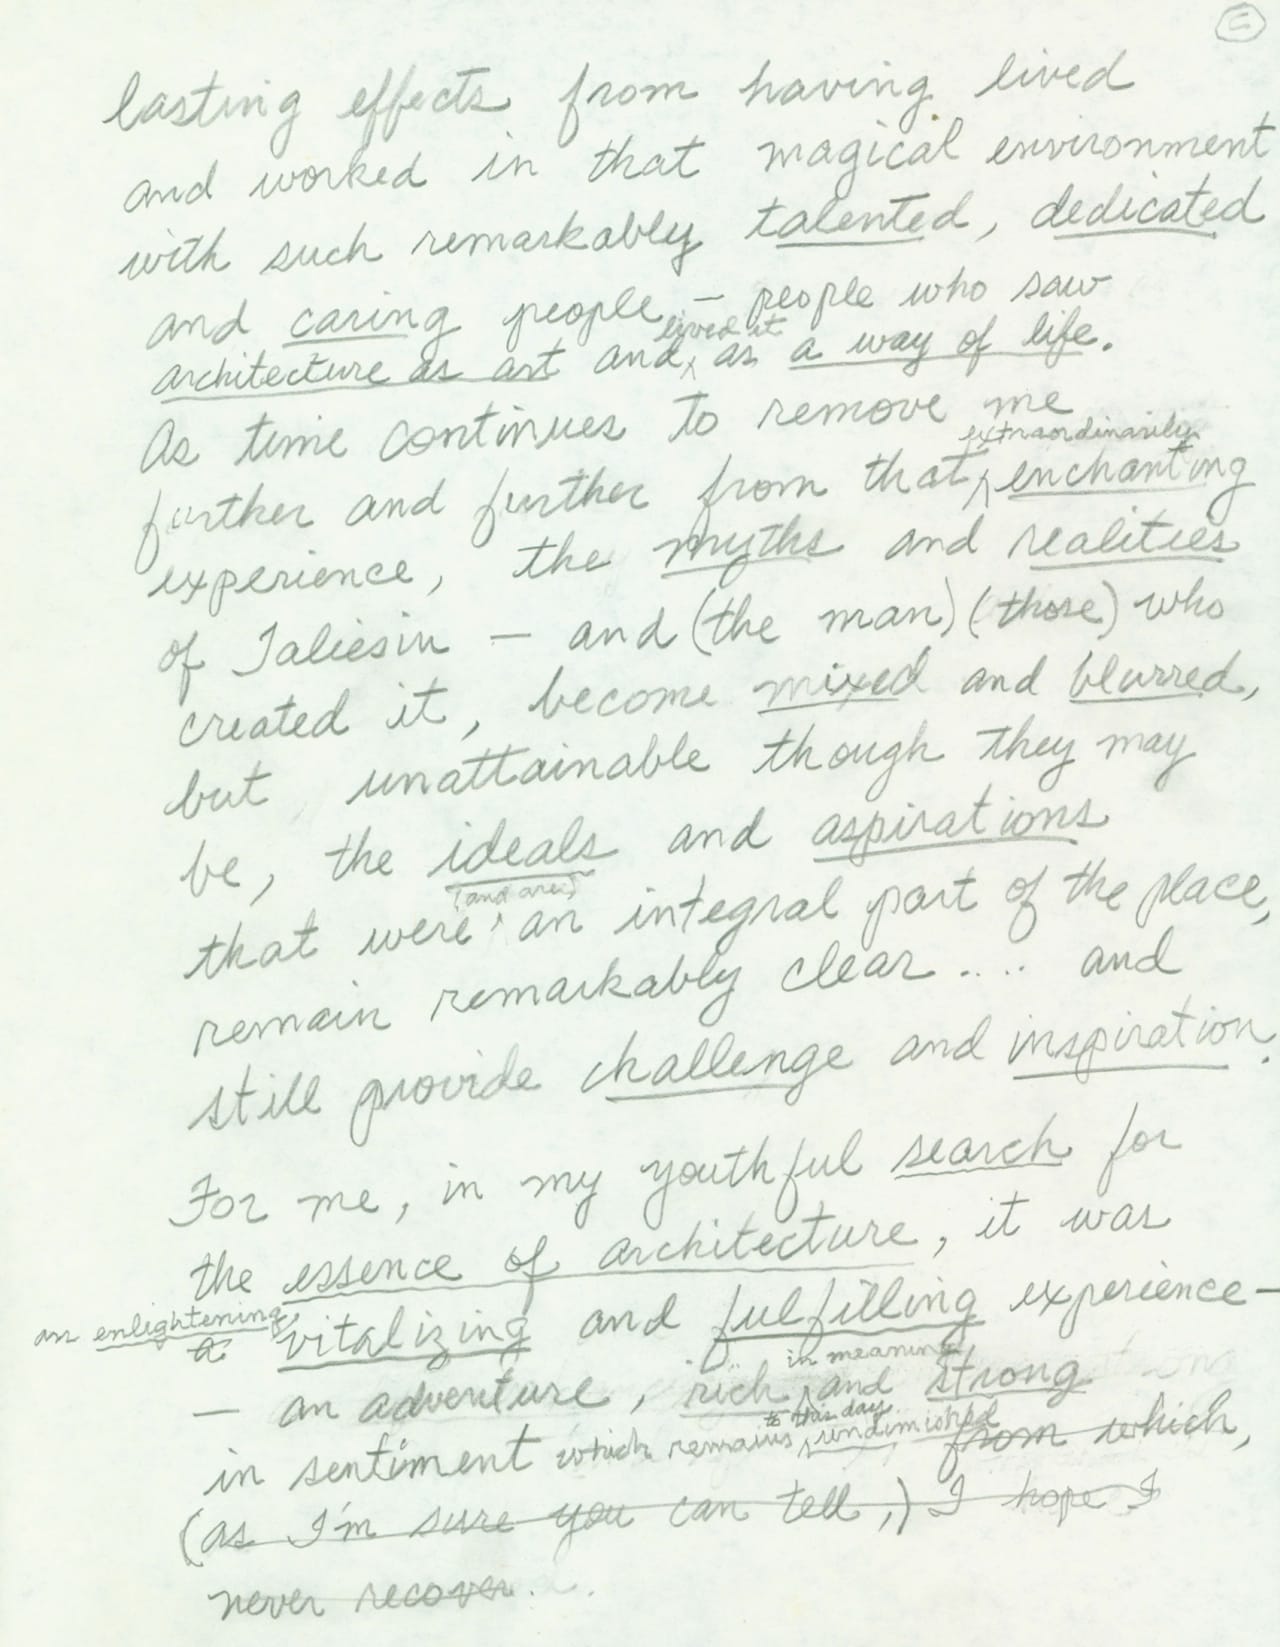 lasting effects from having lived
and worked in that magical environment
with such remarkably talented, dedicated
and caring people — people who saw
lived it
architecture as art and as a way of life.
As time continues to remove me
extraordinarily
further and further from that enchanting
experience, the myths and realities
of Taliesin — and (the man) (those) who
created it, become mixed and blurred,
but unattainable though they may
be, the ideals and aspirations
(and are)
that were an integral part of the place,
remain remarkably clear .... and
still provide challenge and inspiration.
For me, in my youthful search for
the essence of architecture, it was
an enlightening,
a vitalizing and fulfilling experience —
in meaning
— an adventure, rich and strong
to this day
in sentiment which remains undiminished from which,
(as I'm sure you can tell,) I hope I
never recover.